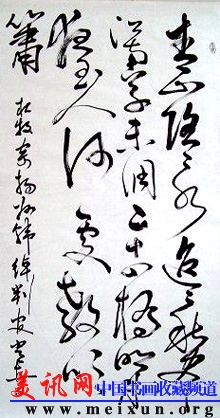 青山隐隐水迢迢秋尽
江南草未凋二十四橋明月
夜玉人何处教吹
簫
杜牧寄揚州韩绰判官
美讯网
中国书画收藏频道
www.meixun.org